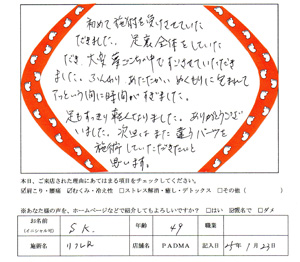 初めて施術を受けさせていた
だきました。足裏全体をしていた
だき、大変気持ち中ですごさせていただき
ました。ふんわりあたたかい、ぬくもりに包まれて
あっという間に時間がすぎました。
足もすっきり軽くなりました。ありがとうござ
いました。次回はまた違うパーツを
施術していただきたいと
思います。
本日、ご来店された理由にあてはまる項目をチェックしてください。
☑肩こり・腰痛 ☑むくみ・冷え性 □ストレス解消・癒し・デトックス □その他（ ）
※あなた様の声を、ホームページなどで紹介してもよろしいですか？ □はい ☑匿名で □ダメ
お名前 （イニシャル可） S.K. 年齢 49 □職業
施術名 リフレR 店舗名 PADMA 記入日 25年1月23日